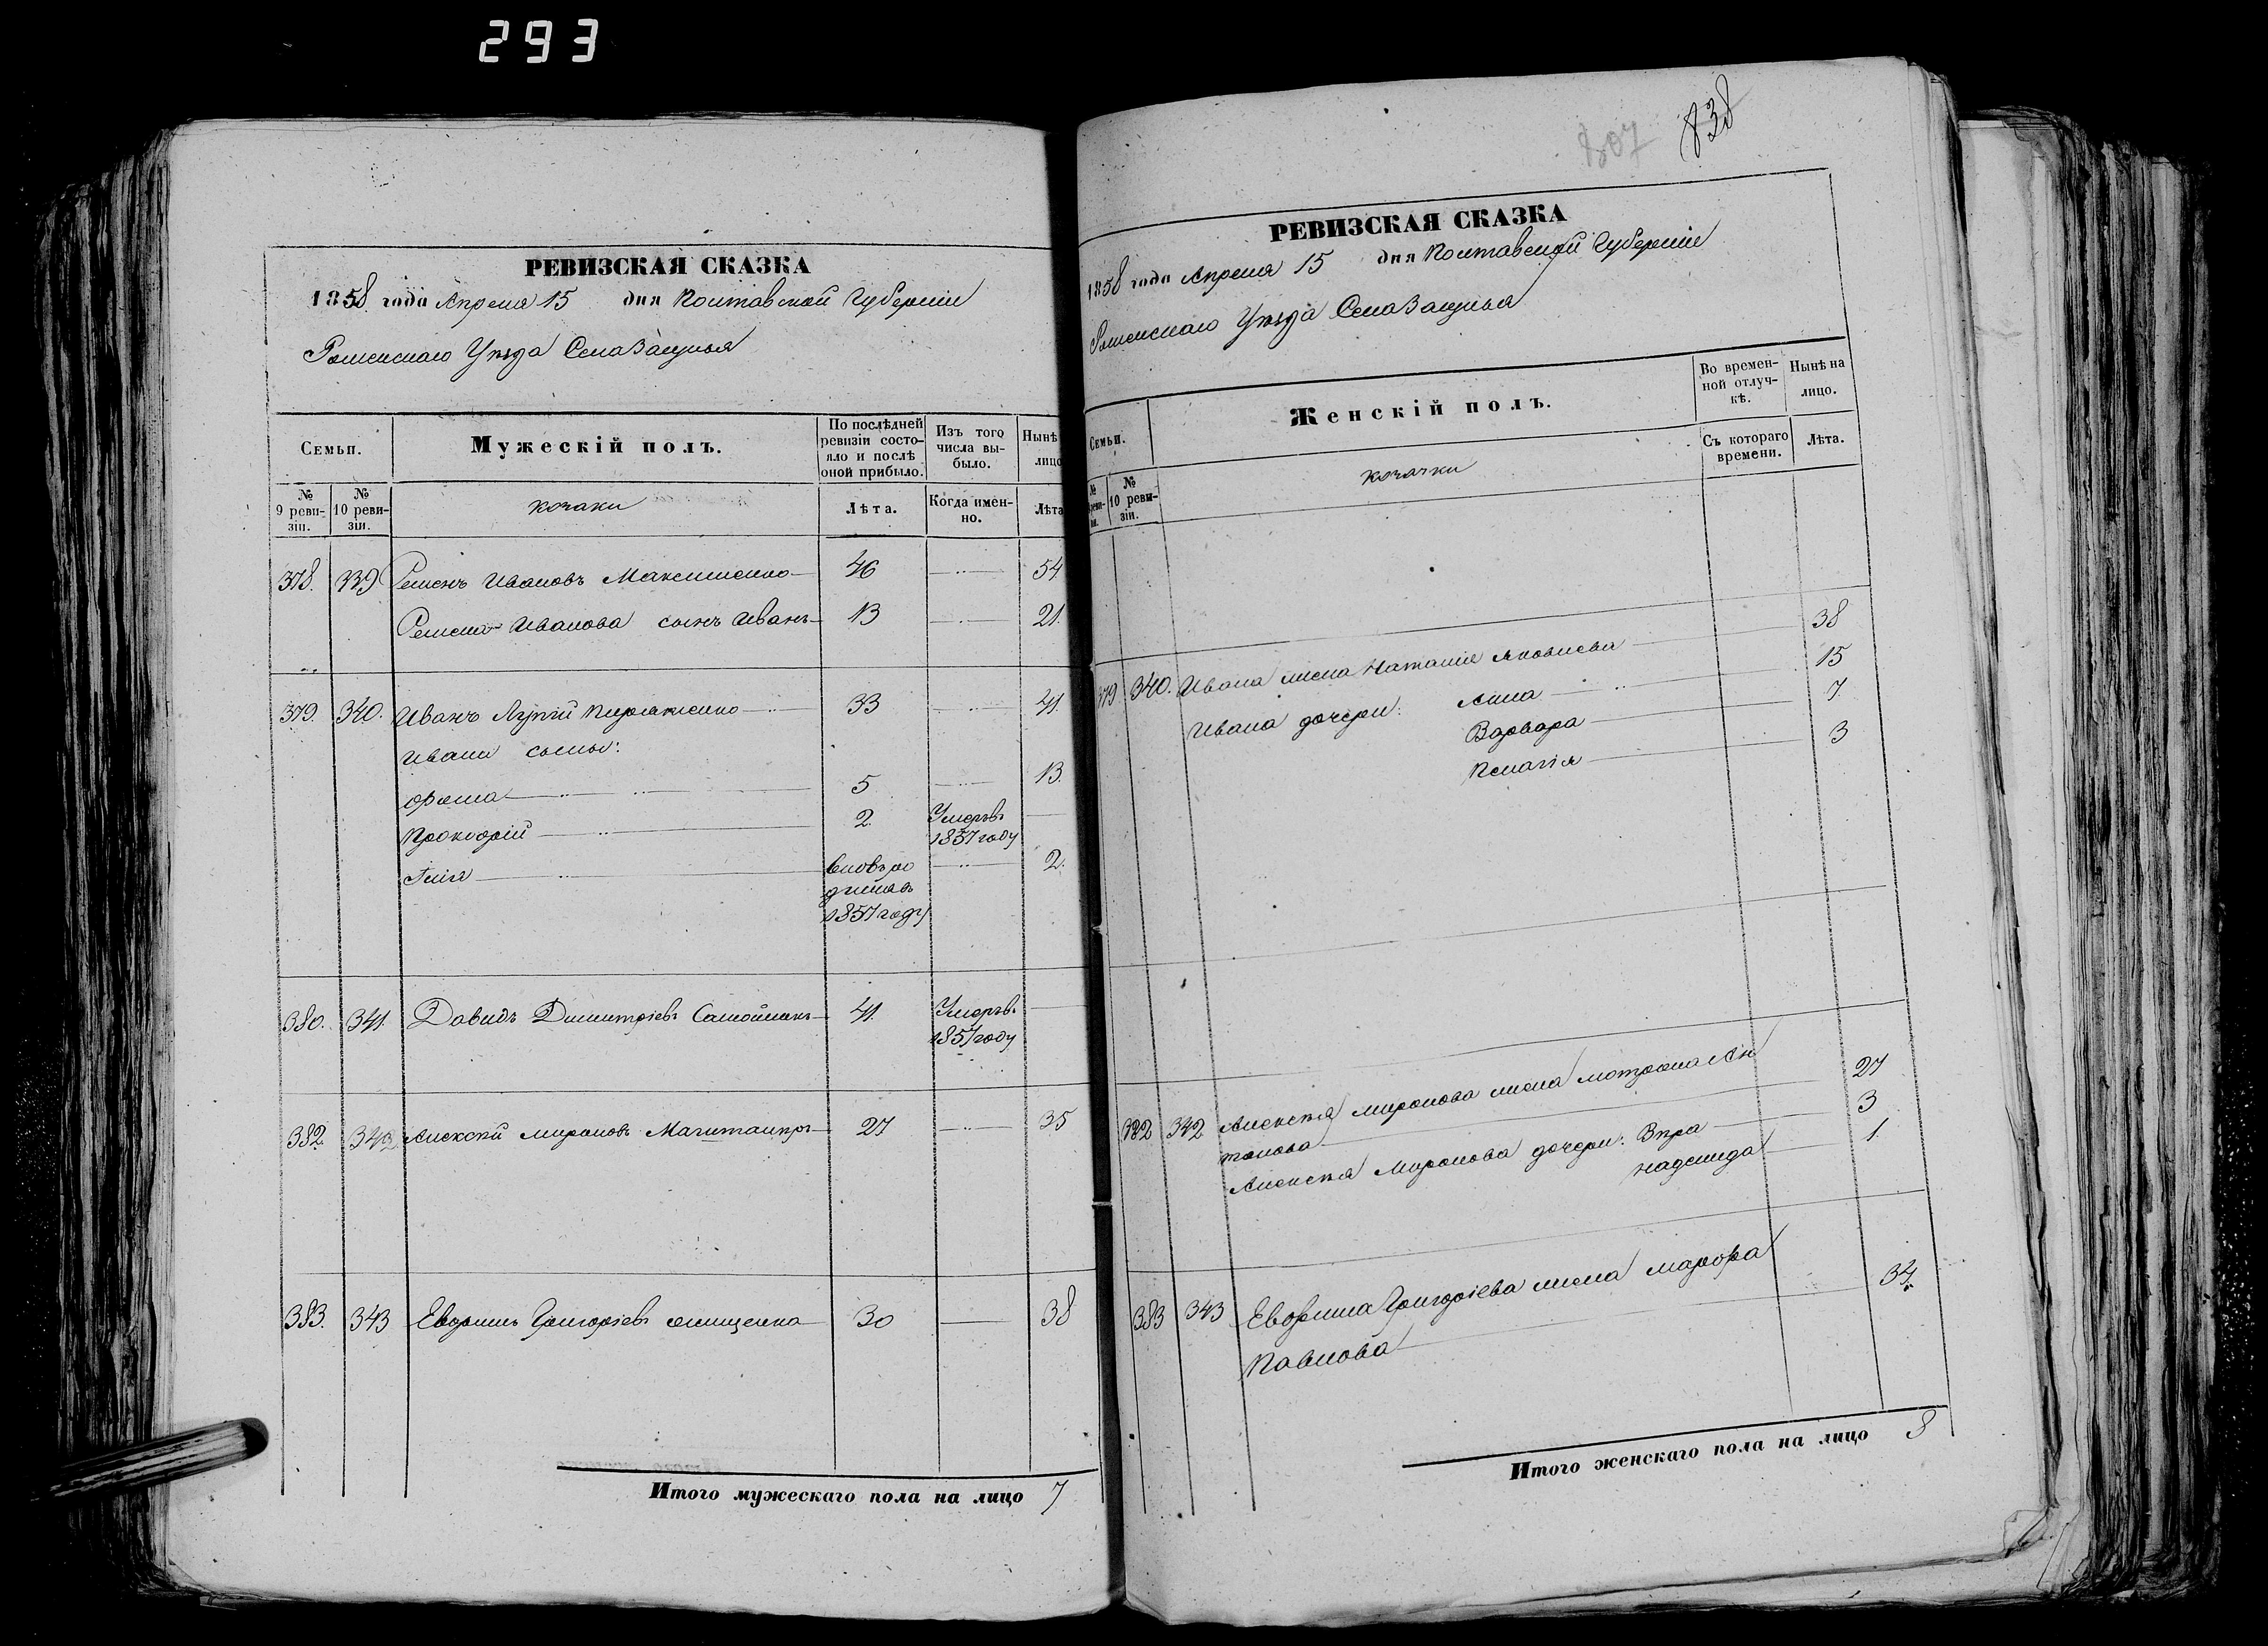 293
РЕВИЗСКАЯ СКАЗКА
1858 года Апреля 15 дня Полтавской Губерніи
Роменскаго Уѣзда Села Зацилья
Семьи.
Мужескій полъ.
По послѣдней ревизіи состояло и послѣ оной прибыло.
Изъ того числа выбыло.
Нынѣ лицо
№ 9 ревизіи.
№ 10 ревизіи.
козаки
Лѣта.
Когда именно.
Лѣта
378. 339 Семенъ Ивановъ Максименко 46 54
Семена Иванова сынъ Иванъ 13 21.
379. 340. Иванъ 33 41.
Ивана сыны:
Фома 5 13.
Прокофій 2. Умеръ въ 1857 году
Илія вновь родился въ 1857 году 2.
380. 341. Давидъ Димитріевъ 41. Умеръ въ 1857 году
382. 342 Алексѣй Мироновъ 27 35
383. 343 Евфимъ Григоріевъ Онищенко 30 38
Итого мужескаго пола на лицо 7
807 838
РЕВИЗСКАЯ СКАЗКА
1858 года Апреля 15 дня Полтавской Губерніи
Роменскаго Уѣзда Села Зацилья
Семьи.
Женскій полъ.
Во временной отлучкѣ.
Нынѣ на лицо.
№ ревизіи.
№ 10 ревизіи.
козачки
Съ котораго времени.
Лѣта.
379 340. Ивана жена Наталія Яковлева 38
Ивана дочери: Анна 15
Варвара 7
Пелагія 3
382 342 Алексѣя Миронова жена Мотрона Ан
тонова 27
Алексѣя Миронова дочери: Вѣра 3
Надежда 1.
383 343 Евфима Григоріева жена Марфа
Павлова 34.
Итого женскаго пола на лицо 8